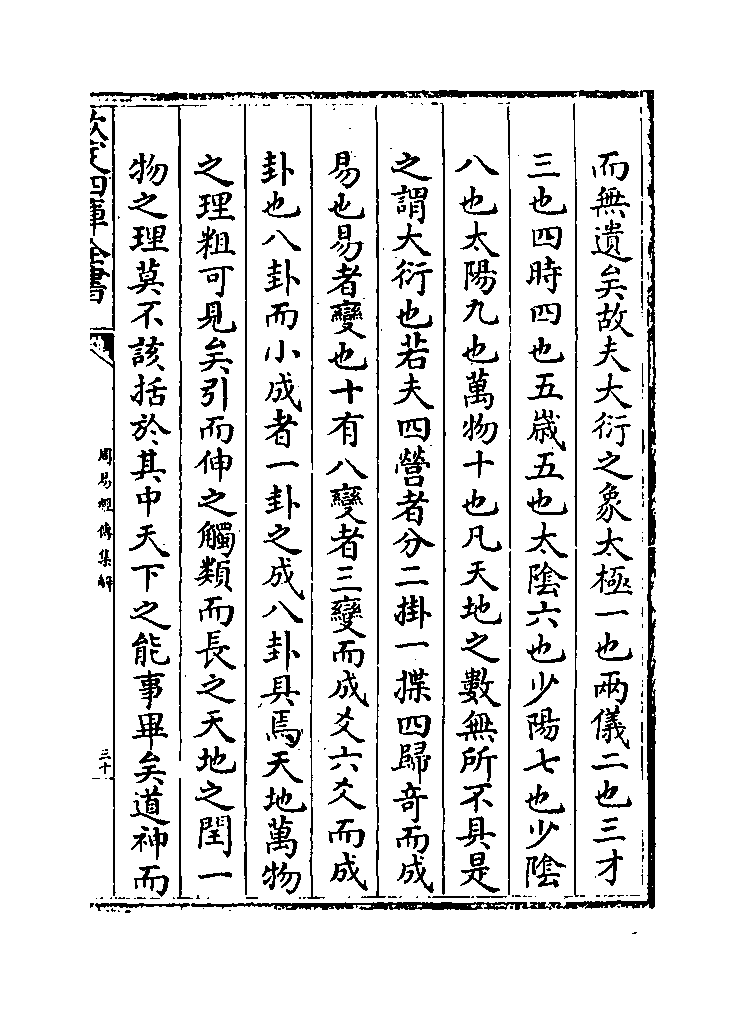 而無遺矣故夫大衍之象太極一也兩儀二也三才
三也四時四也五歲五也太陰六也少陽七也少陰
八也太陽九也萬物十也凡天地之數無所不具是
之謂大衍也若夫四營者分二掛一揲四歸奇而成
易也易者變也十有八變者三變而成爻六爻而成
卦也八卦而小成者一卦之成八卦具焉天地萬物
之理粗可見矣引而伸之觸類而長之天地之間一
物之理莫不該括於其中天下之能事畢矣道神而
欽定四庫全書
周易經傳集解
三十